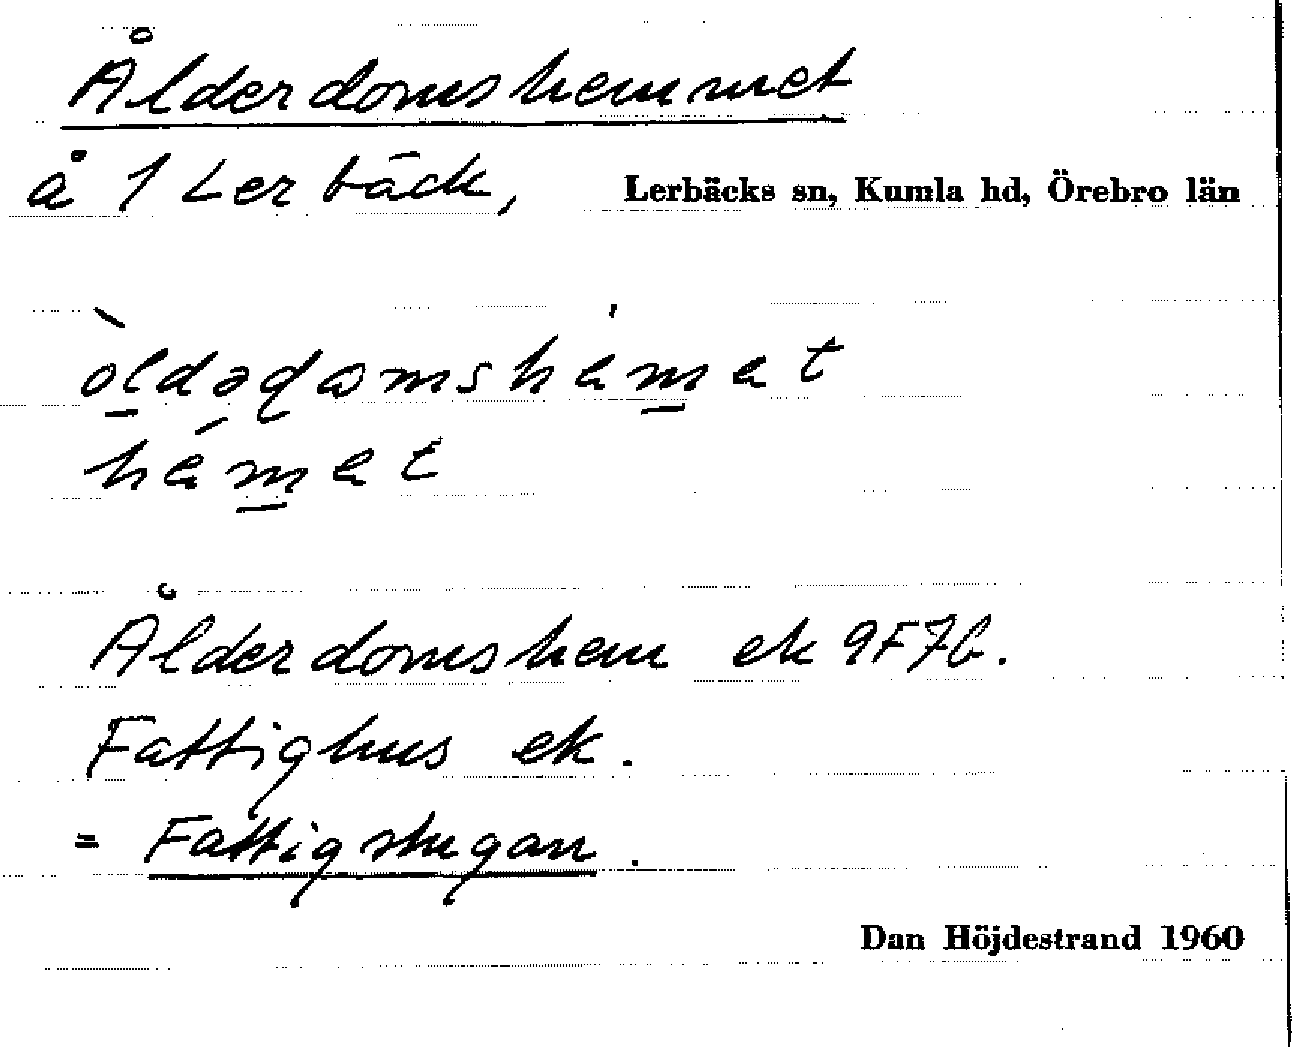 Ålderdomshemmet
å 1 Lerbäck, Lerbäcks sn, Kumla hd, Örebro län
òldədωmshémat
hémat
Ålderdomshem ek 9F7b.
Fattighus ek.
= Fattigstugan.
Dan Höjdestrand 1960